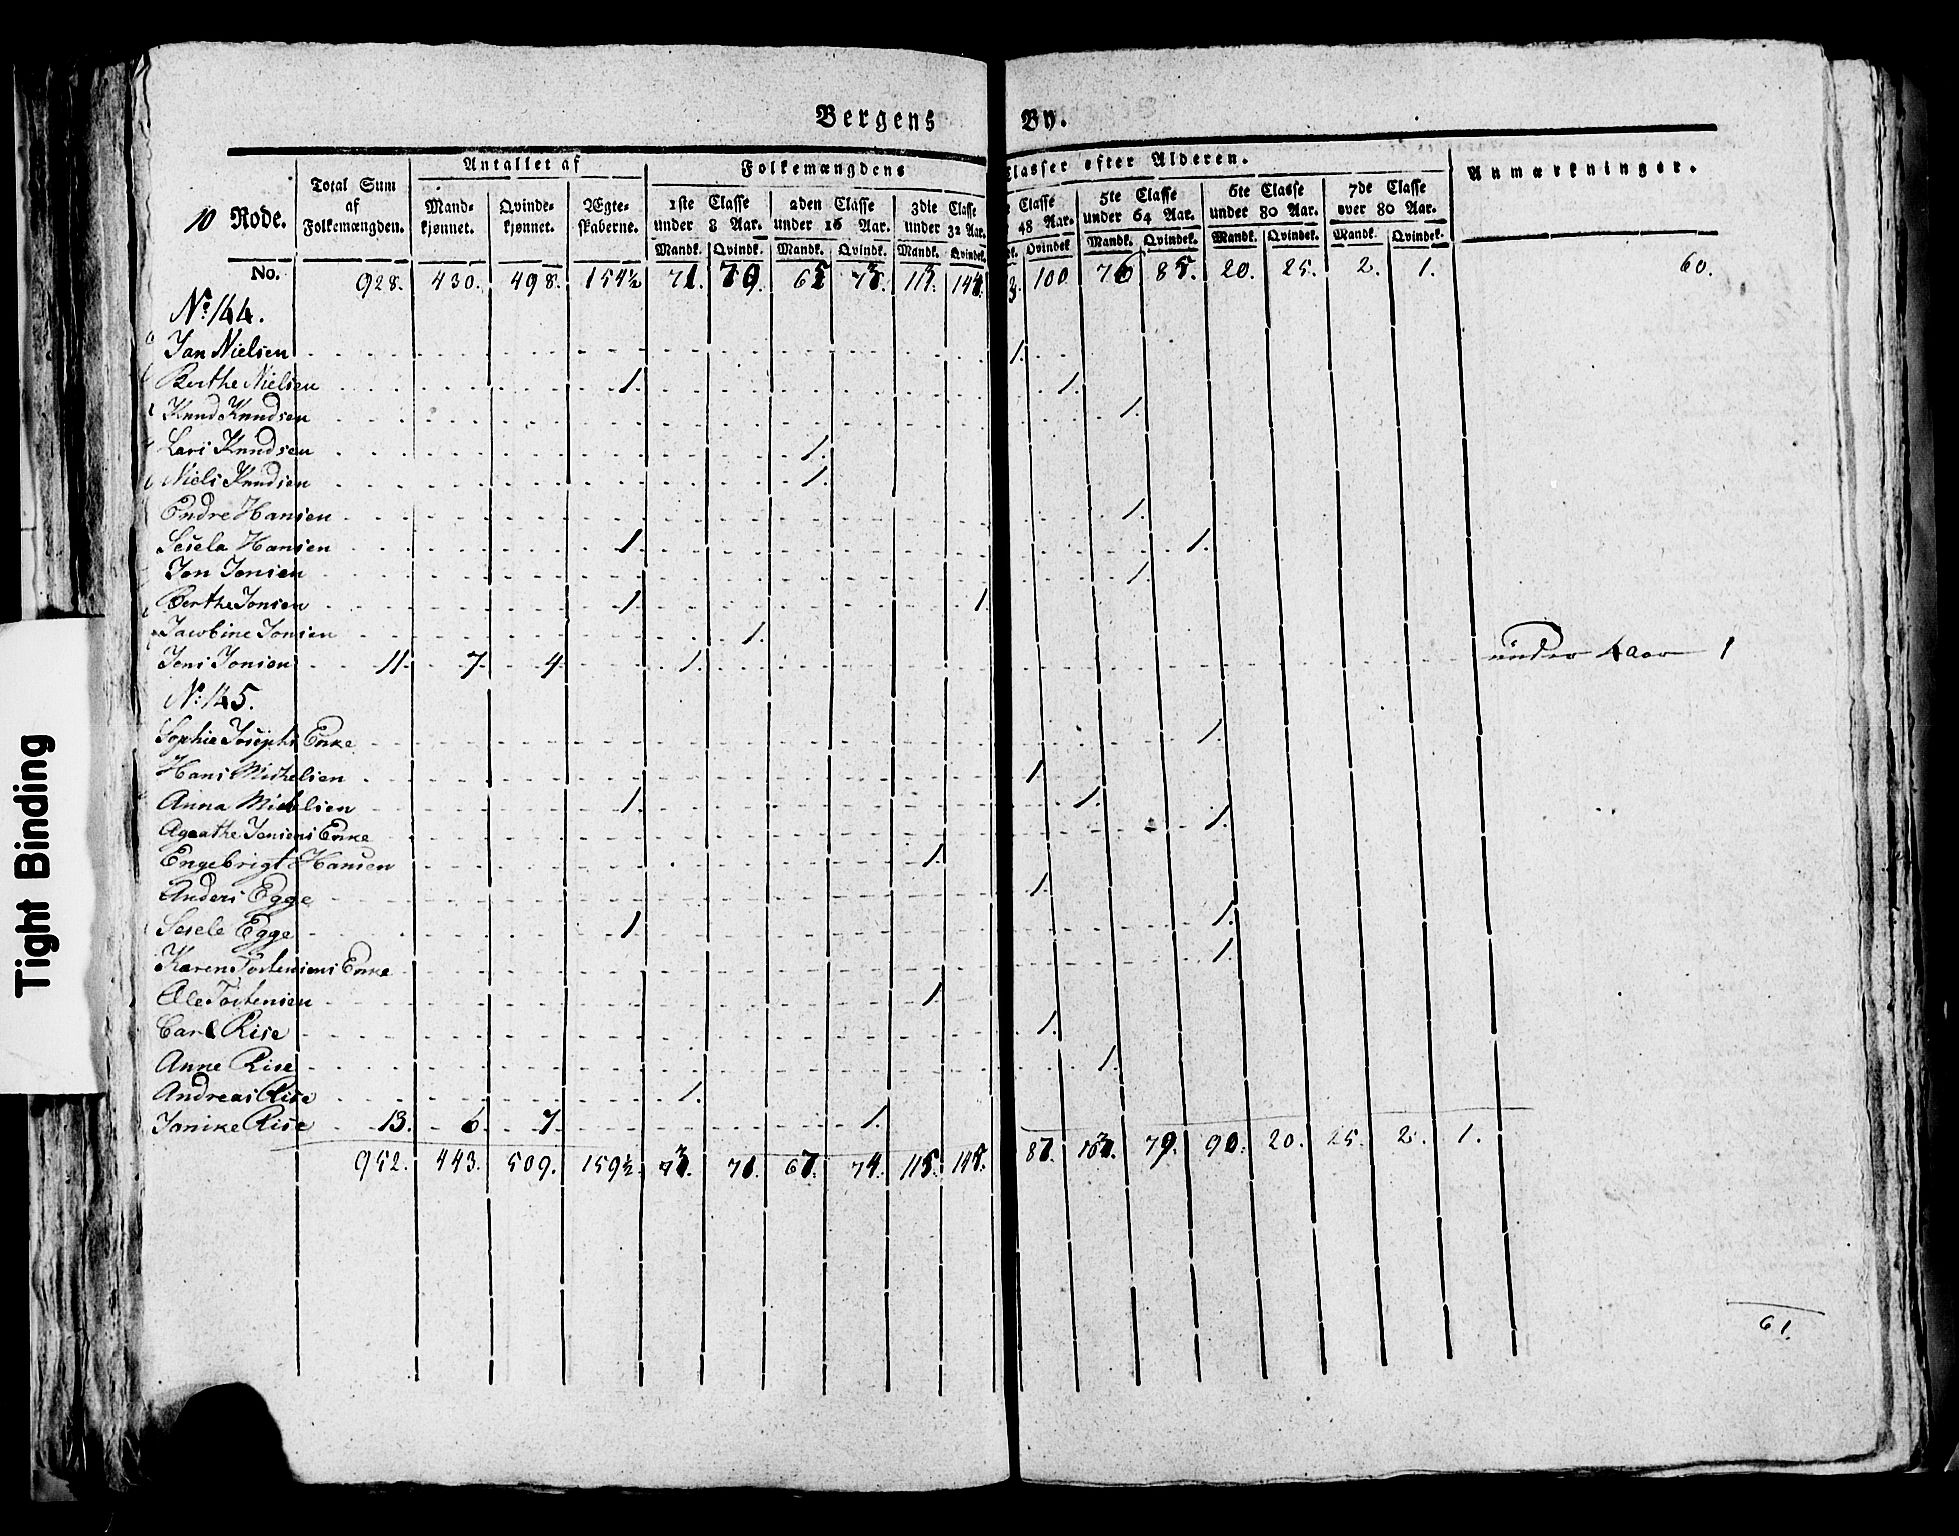 Bergens By.
10 Rode.
Total Sum af Folkemængden.
Antallet af
Mandkjønnet. Qvindekjønnet. Ægteskaberne.
Folkemængdens Classer efter Alderen.
1ste Classe under 8 Aar. 2den Classe under 16 Aar. 3die Classe under 32 Aar. Classe 48 Aar. 5te Classe under 64 Aar. 6te Classe under 80 Aar. 7de Classe over 80 Aar.
Mandk. Qvindk. Mandk. Qvindk. Mandk. Qvindek. Qvindek. Mandk. Qvindek. Mandk. Qvindek. Mandk. Qvindek.
Anmærkninger.
No. 928. 430. 498. 154½ 100 20. 25. 2. 1. 60.
No: 144.
Jan Nielsen 1.
Berthe Nielsen 1. 1.
Knud Knudsen 1.
Lars Knudsen 1.
Niels Knudsen 1.
Endre Hansen 1.
Sesela Hansen 1. 1.
Jon Jonsen 1.
Berthe Jonsen 1. 1.
Jacobine Jonsen 1.
Jens Jonsen 11. 7. 4. 1. under 4 aar 1
No: 145.
Sophie Josephs Enke 1.
Hans Michelsen 1.
Anna Michelsen 1. 1.
Agathe Jensens Enke 1.
Engebrigt Hansen 1.
Anders Egge 1.
Sesele Egge 1. 1.
Karen Tostensens Enke 1.
Ole Tostensen 1.
Carl Rise 1.
Anne Rise 1.
Andreas Rise 1.
Janike Rise 13. 6. 7. 1.
952. 443. 509. 159½ 73. 71. 67. 74. 115. 145. 87. 103. 79. 90. 20. 25. 2. 1.
61.
Tight Binding